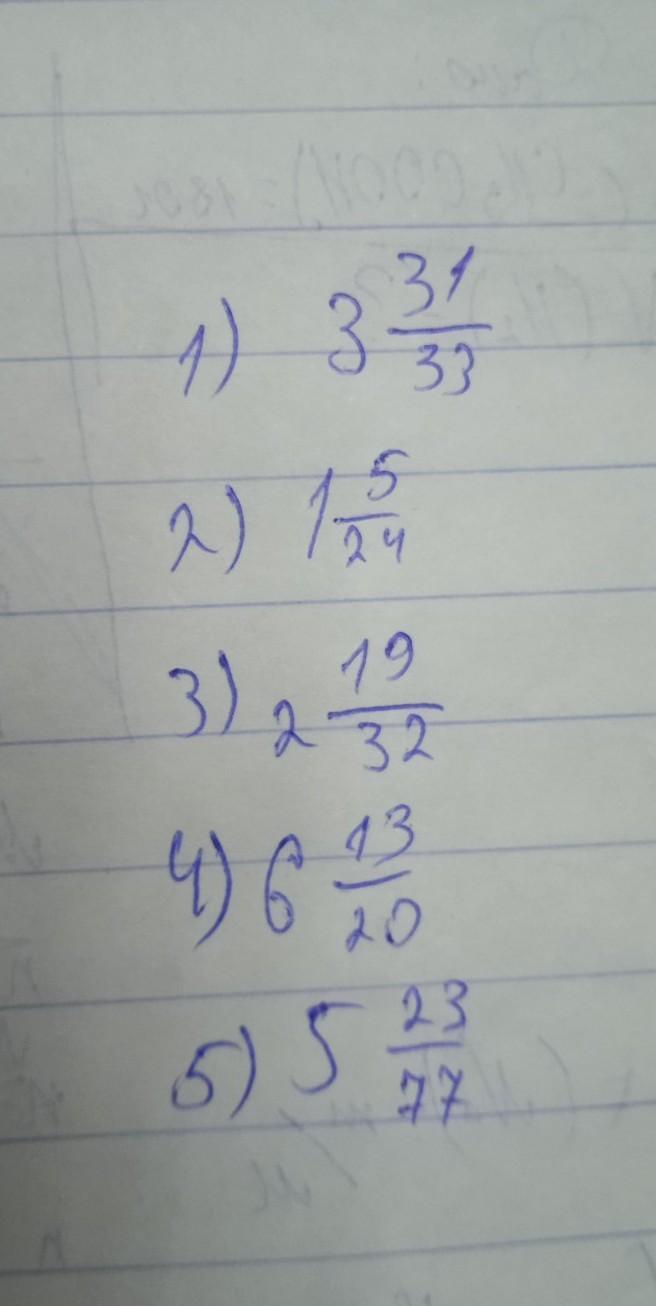 1) 3 31/33
2) 1 5/24
3) 2 19/32
4) 6 13/20
5) 5 23/77